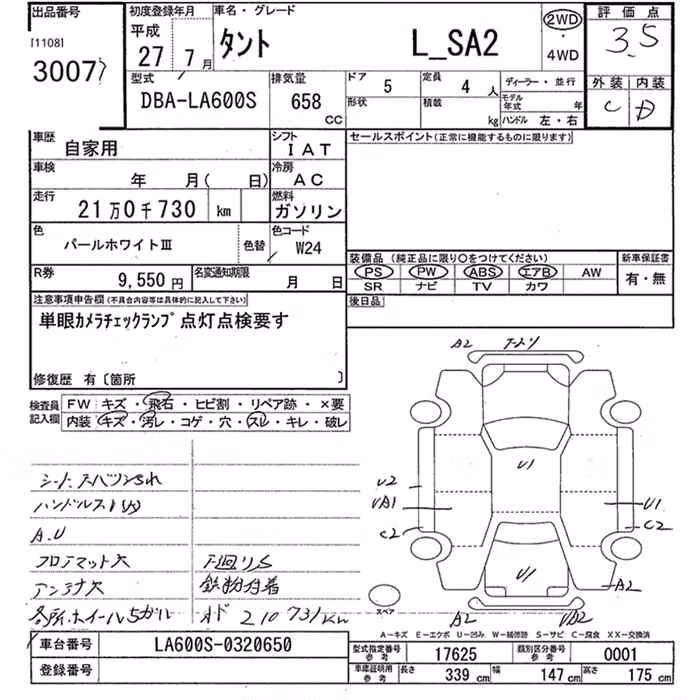 出品番号
[1108]
3007
初度登録年月
平成
27 年 7 月
車名・グレード
タント L_SA2
2WD
・
4WD
評価点
3.5
外装 内装
C D
型式
DBA-LA600S
排気量
658
CC
ドア 5
定員 4 人
形状
積載 kg
ディーラー・並行
モデル年式 年
ハンドル 左・右
車歴 自家用
シフト IAT
車検 年 月( 日)
冷房 AC
走行 21万0千730 km
燃料 ガソリン
色 パールホワイトⅢ
色替
色コード W24
R券 9,550 円
名変通知期限 月 日
セールスポイント(正常に機能するものに限ります)
装備品 (純正品に限り〇をつけてください)
PS PW ABS エアB AW
SR ナビ TV カワ
新車保証書
有・無
後日品
注意事項申告欄(不具合内容等は具体的に記入して下さい)
単眼カメラチェックランプ点灯点検要す
修復歴 有〔箇所 〕
検査員記入欄
FW キズ・飛石・ヒビ割・リペア跡・×要
内装 キズ・汚レ・コゲ・穴・スレ・キレ・破レ
A.U
フロアマット欠
アンテナ欠
下廻りS
鉄粉付着
210731km
A2
U1
U2
UA1
C2
U1
C2
U1
A2
A2
UA2
スペア
A-キズ E-エクボ U-凹み W-補修跡 S-サビ C-腐食 XX-交換済
車台番号 LA600S-0320650
登録番号
型式指定番号 参考 17625
類別区分番号 参考 0001
車庫証明用 参考 長さ 339 cm 幅 147 cm 高さ 175 cm